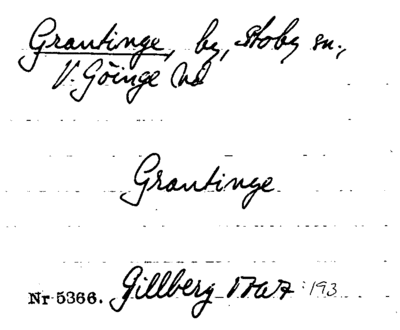 Grantinge, by, Stoby sn.,
V. Göinge hd
Grantinge
Nr 5366. Gillberg 1767 :193